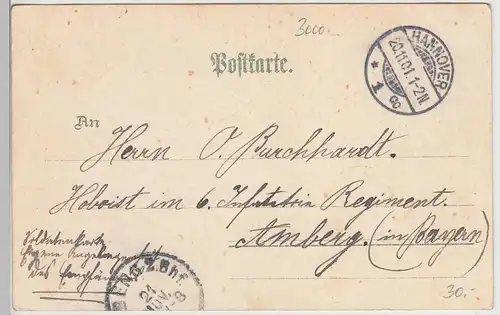 3000.-
Postkarte.
HANNOVER
20.11.01. 1-2N.
* 1 cc
An
Herrn O. Burchhardt.
Hoboist im 6. Infaterie Regiment.
Amberg. (in Bayern)
Soldatenkarte
Eigene Angelegenheit
des Empfän
BERG. 2. Bhf.
21
NOV.
30.-